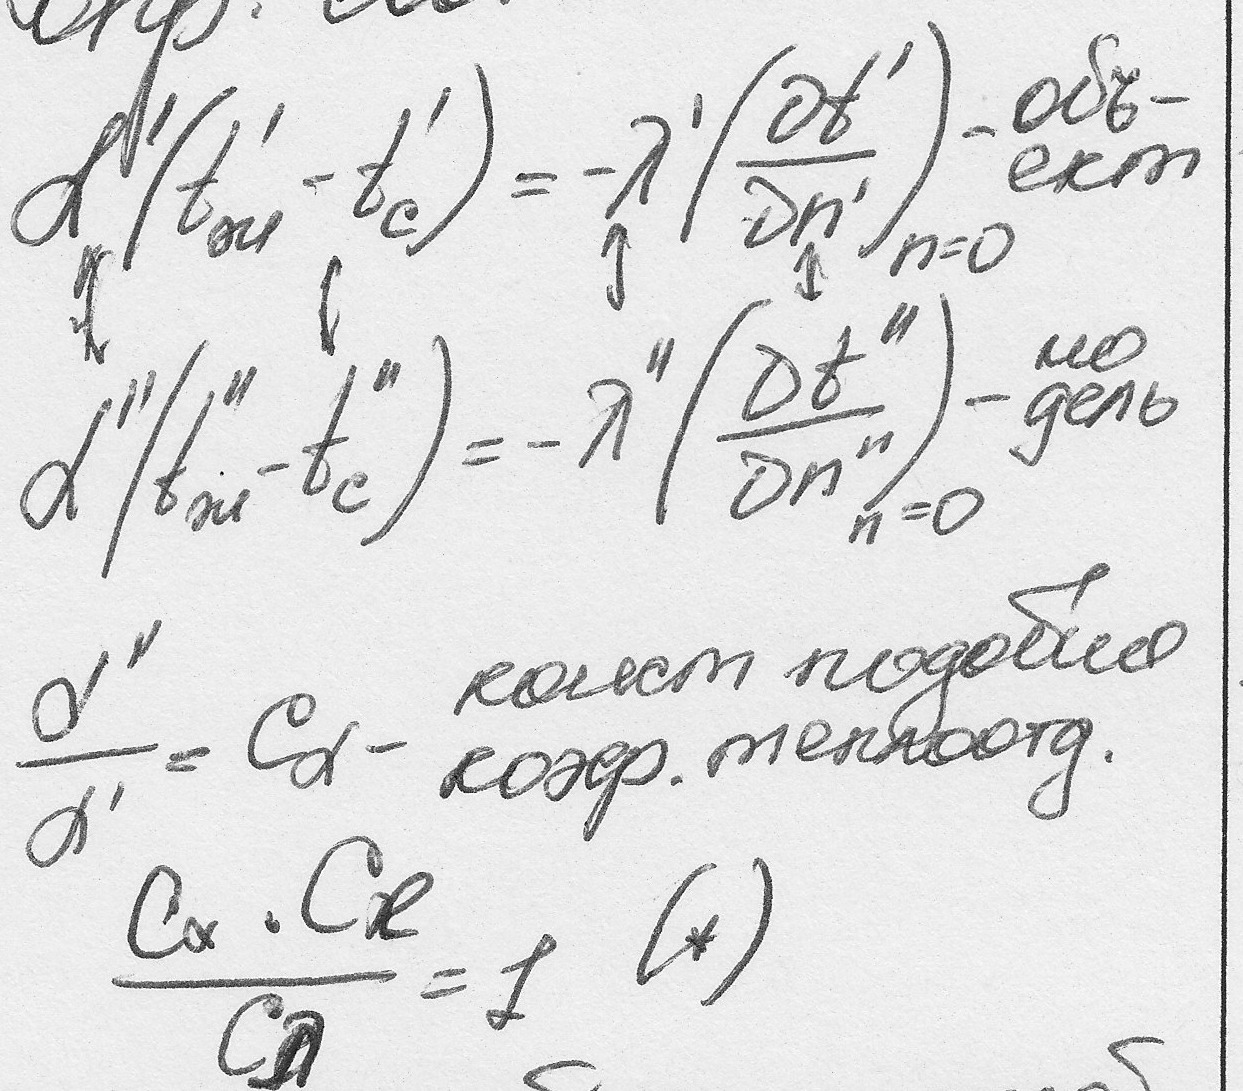 α'(t'ж - t'c) = -λ'(∂t'/∂n')n=0 - объ-
ект
α''(t''ж - t''c) = -λ''(∂t''/∂n'')n=0 - мо
дель
α''/α' = Cα - конст подобия
коэф. теплоотд.
Cα · Cℓ / Cλ = 1 (*)